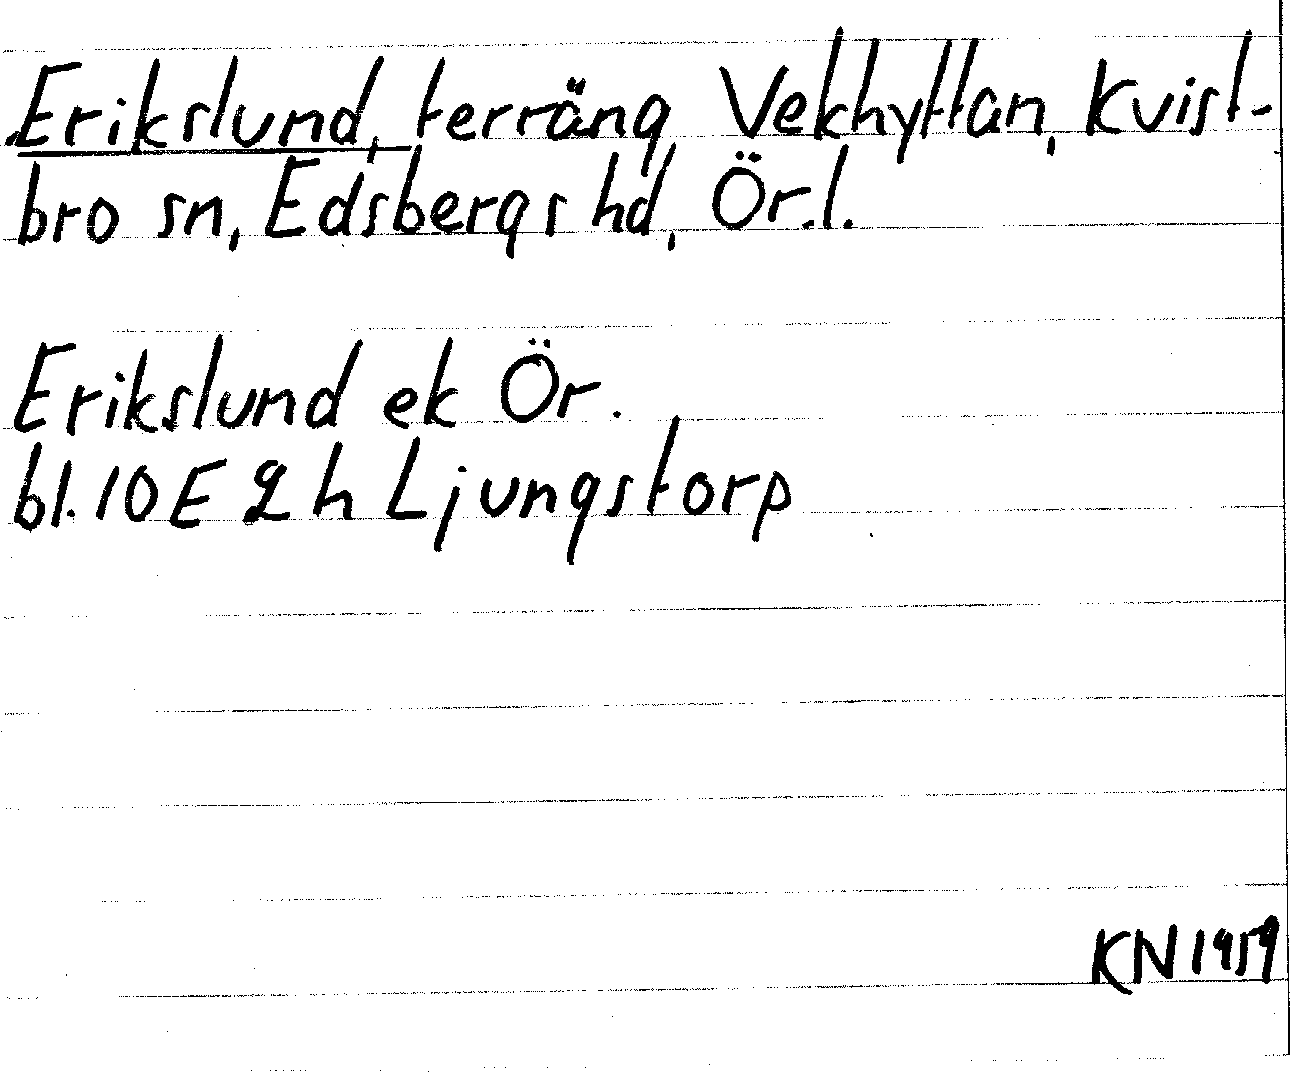 Erikslund, terräng, Vekhyttan, Kvist-
bro sn, Edsbergs hd, Ör.l.
Erikslund ek Ör.
bl. 10E 2h Ljungstorp
KN 1959